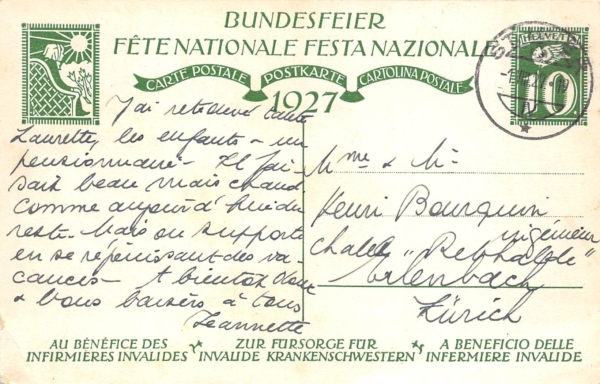 BUNDESFEIER
FÊTE NATIONALE FESTA NAZIONALE
CARTE POSTALE POSTKARTE CARTOLINA POSTALE
1927
HELVETIA
10
J'ai retrouvé
Laurette, les enfants - un
pensionnaire - Il fai-
sait beau mais chaud
comme aujourd'hui du
reste. Mais on supporte
en se réjouissant des va-
cances - A bientôt donc
& bons baisers à tous
Jeannette
Mme & Mr
Henri Bourquin
ingénieur
Chalet "Rebhalde"
Erlenbach
Zürich
AU BÉNÉFICE DES
INFIRMIÈRES INVALIDES
ZUR FÜRSORGE FÜR
INVALIDE KRANKENSCHWESTERN
A BENEFICIO DELLE
INFERMIERE INVALIDE